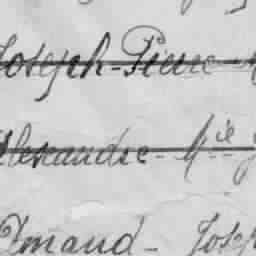 Joseph-Pierre-
Alexandre-Mie
Amand-Josep